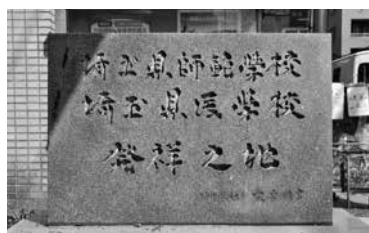 埼玉県師範學校
埼玉県医學校
発祥之地